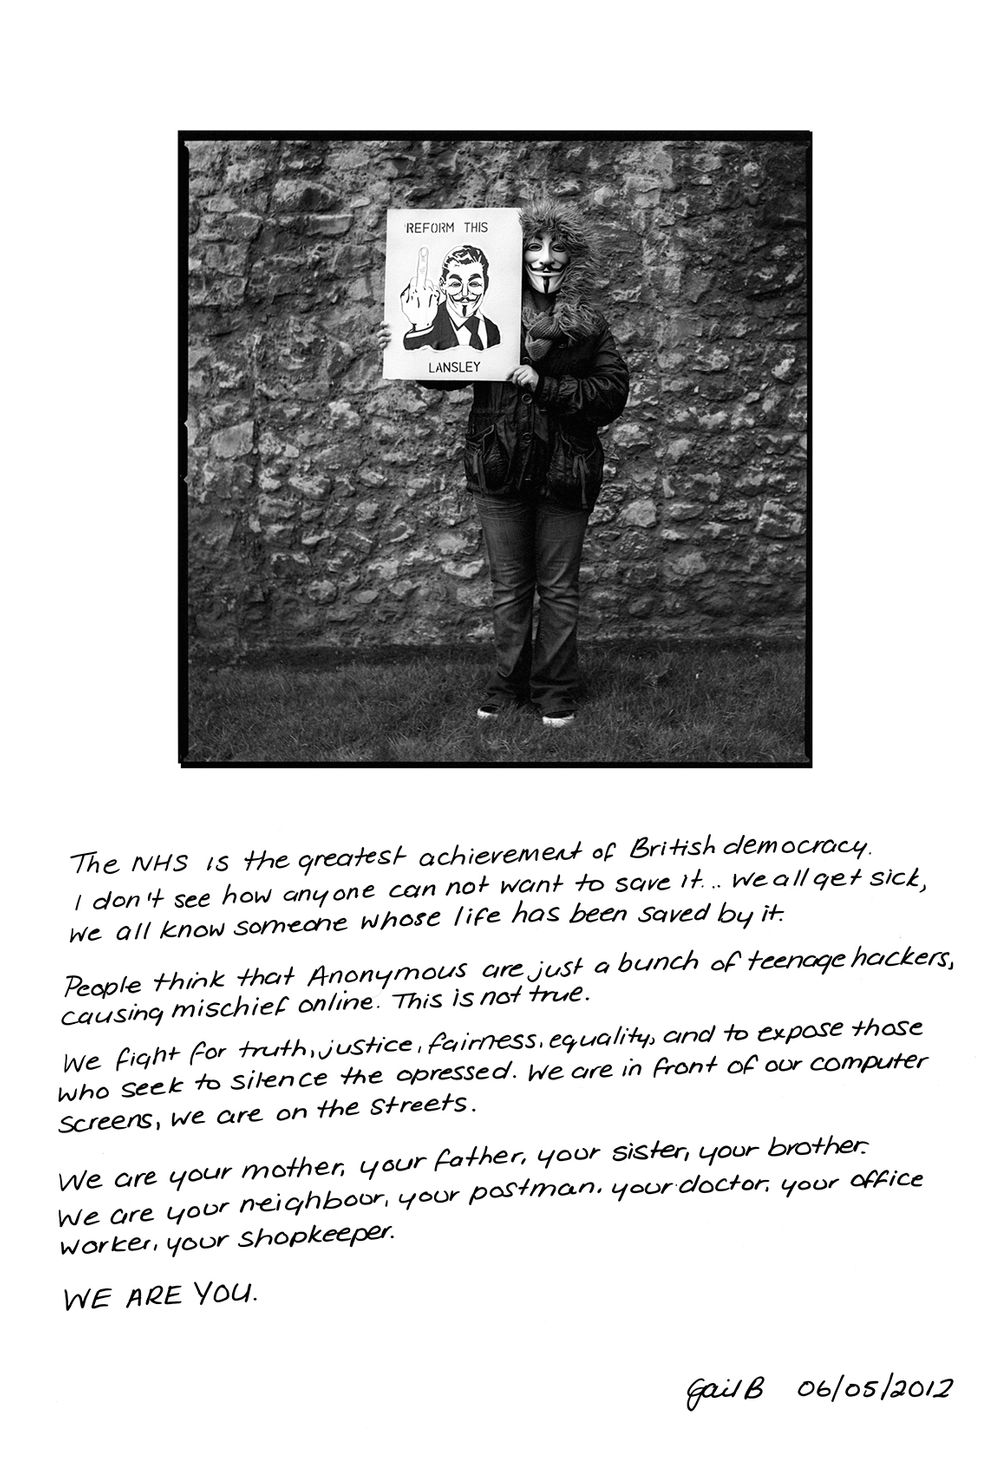 REFORM THIS
LANSLEY
The NHS is the greatest achievement of British democracy.
I don't see how anyone can not want to save it... We all get sick,
we all know someone whose life has been saved by it.
People think that Anonymous are just a bunch of teenage hackers,
causing mischief online. This is not true.
We fight for truth, justice, fairness, equality, and to expose those
who seek to silence the opressed. We are in front of our computer
screens, we are on the streets.
We are your mother, your father, your sister, your brother.
We are your neighbour, your postman. your doctor. your office
worker, your shopkeeper.
WE ARE YOU.
Gail B 06/05/2012